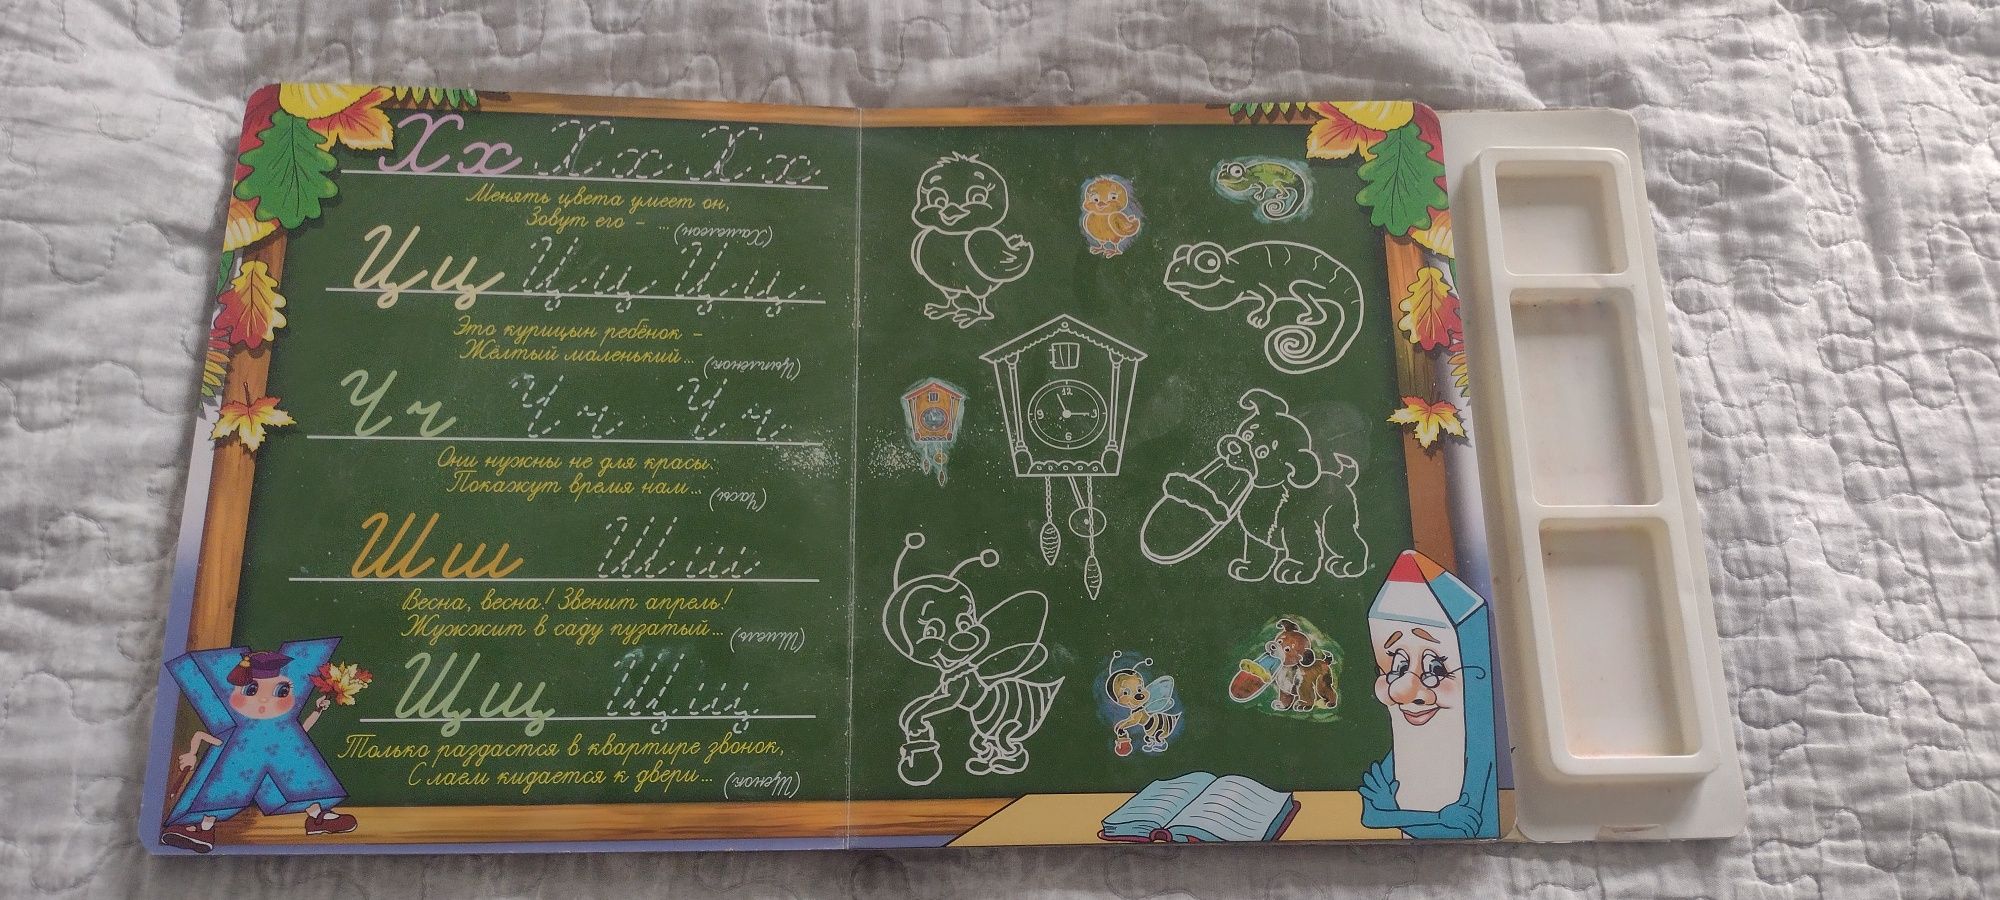 Хх Хх Хх
Менять цвета умеет он,
Зовут его – ... (Хамелеон)
Цц Цц Цц
Это курицын ребёнок –
Жёлтый маленький... (Цыплёнок)
Чч Чч Чч
Они нужны не для красы.
Покажут время нам... (Часы)
Шш Шш
Весна, весна! Звенит апрель!
Жужжит в саду пузатый... (Шмель)
Щщ Щщ
Только раздастся в квартире звонок,
С лаем кидается к двери... (Щенок)
12
9 3
6